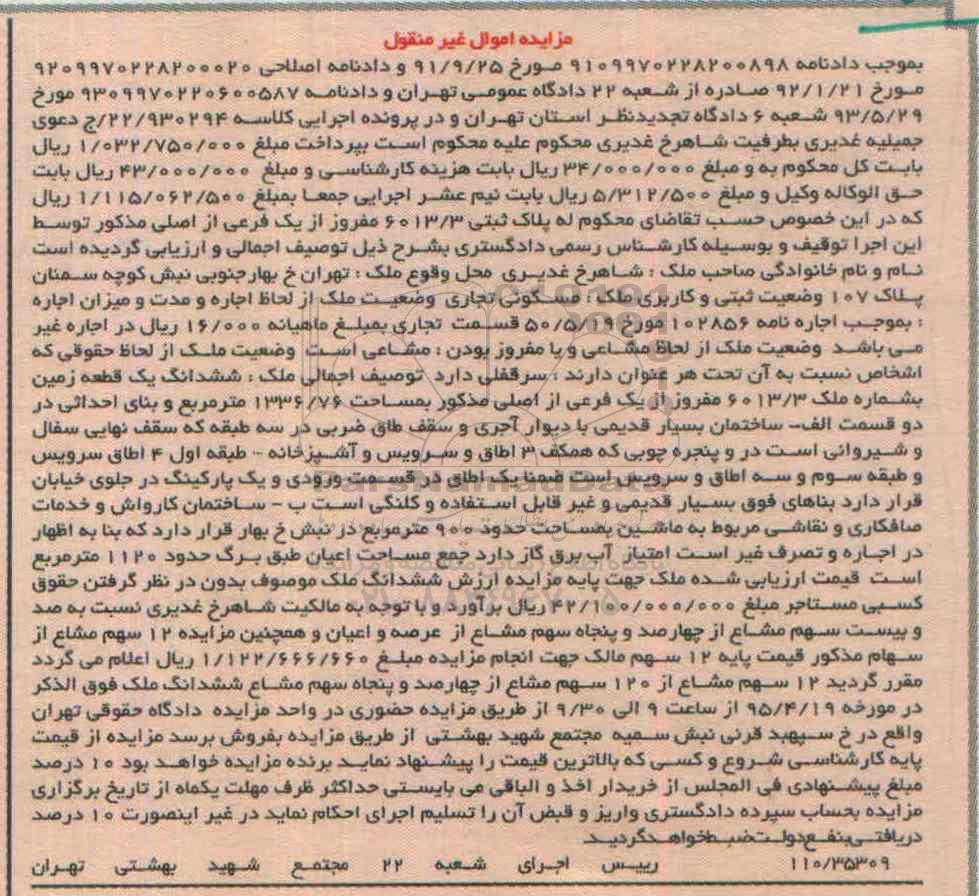 مزایده اموال غیر منقول
بموجب دادنامه ۹۱۰۹۹۷۰۲۲۸۲۰۰۸۹۸ مورخ ۹۱/۹/۲۵ و دادنامه اصلاحی ۹۲۰۹۹۷۰۲۲۸۲۰۰۰۲۰
مورخ ۹۲/۱/۲۱ صادره از شعبه ۲۲ دادگاه عمومی تهران و دادنامه ۹۳۰۹۹۷۰۲۲۰۶۰۰۵۸۷ مورخ
۹۳/۵/۲۹ شعبه ۶ دادگاه تجدیدنظر استان تهران و در پرونده اجرایی کلاسه ۲۲/۹۳۰۲۹۴/ج دعوی
جمیلیه غدیری بطرفیت شاهرخ غدیری محکوم علیه محکوم است بپرداخت مبلغ ۱/۰۳۲/۷۵۰/۰۰۰ ریال
بابت کل محکوم به و مبلغ ۳۴/۰۰۰/۰۰۰ ریال بابت هزینه کارشناسی و مبلغ ۴۳/۰۰۰/۰۰۰ ریال بابت
حق الوکاله وکیل و مبلغ ۵/۳۱۲/۵۰۰ ریال بابت نیم عشر اجرایی جمعا بمبلغ ۱/۱۱۵/۰۶۲/۵۰۰ ریال
که در این خصوص حسب تقاضای محکوم له پلاک ثبتی ۶۰۱۳/۳ مفروز از یک فرعی از اصلی مذکور توسط
این اجرا توقیف و بوسیله کارشناس رسمی دادگستری بشرح ذیل توصیف اجمالی و ارزیابی گردیده است
نام و نام خانوادگی صاحب ملک : شاهرخ غدیری محل وقوع ملک : تهران خ بهار جنوبی نبش کوچه سمنان
پلاک ۱۰۷ وضعیت ثبتی و کاربری ملک : مسکونی تجاری وضعیت ملک از لحاظ اجاره و مدت و میزان اجاره
: بموجب اجاره نامه ۱۰۲۸۵۶ مورخ ۵۰/۵/۱۹ قسمت تجاری بمبلغ ماهیانه ۱۶/۰۰۰ ریال در اجاره غیر
می باشد وضعیت ملک از لحاظ مشاعی و یا مفروز بودن : مشاعی است وضعیت ملک از لحاظ حقوقی که
اشخاص نسبت به آن تحت هر عنوان دارند : سرقفلی دارد توصیف اجمالی ملک : ششدانگ یک قطعه زمین
بشماره ملک ۶۰۱۳/۳ مفروز از یک فرعی از اصلی مذکور بمساحت ۱۳۳۶/۷۶ مترمربع و بنای احداثی در
دو قسمت الف- ساختمان بسیار قدیمی با دیوار آجری و سقف طاق ضربی در سه طبقه که سقف نهایی سفال
و شیروانی است در و پنجره چوبی که همکف ۳ اطاق و سرویس و آشپزخانه - طبقه اول ۴ اطاق سرویس
و طبقه سوم و سه اطاق و سرویس است ضمنا یک اطاق در قسمت ورودی و یک پارکینگ در جلوی خیابان
قرار دارد بناهای فوق بسیار قدیمی و غیر قابل استفاده و کلنگی است ب - ساختمان کارواش و خدمات
صافکاری و نقاشی مربوط به ماشین بمساحت حدود ۹۰۰ مترمربع در نبش خ بهار قرار دارد که بنا به اظهار
در اجاره و تصرف غیر است امتیاز آب برق گاز دارد جمع مساحت اعیان طبق برگ حدود ۱۱۲۰ مترمربع
است قیمت ارزیابی شده ملک جهت پایه مزایده ارزش ششدانگ ملک موصوف بدون در نظر گرفتن حقوق
کسبی مستاجر مبلغ ۴۲/۱۰۰/۰۰۰/۰۰۰ ریال برآورد و با توجه به مالکیت شاهرخ غدیری نسبت به صد
و بیست سهم مشاع از چهارصد و پنجاه سهم مشاع از عرصه و اعیان و همچنین مزایده ۱۲ سهم مشاع از
سهام مذکور قیمت پایه ۱۲ سهم مالک جهت انجام مزایده مبلغ ۱/۱۲۲/۶۶۶/۶۶۰ ریال اعلام می گردد
مقرر گردید ۱۲ سهم مشاع از ۱۲۰ سهم مشاع از چهارصد و پنجاه سهم مشاع ششدانگ ملک فوق الذکر
در مورخه ۹۵/۴/۱۹ از ساعت ۹ الی ۹/۳۰ از طریق مزایده حضوری در واحد مزایده دادگاه حقوقی تهران
واقع در خ سپهبد قرنی نبش سمیه مجتمع شهید بهشتی از طریق مزایده بفروش برسد مزایده از قیمت
پایه کارشناسی شروع و کسی که بالاترین قیمت را پیشنهاد نماید برنده مزایده خواهد بود ۱۰ درصد
مبلغ پیشنهادی فی المجلس از خریدار اخذ و الباقی می بایستی حداکثر ظرف مهلت یکماه از تاریخ برگزاری
مزایده بحساب سپرده دادگستری واریز و قبض آن را تسلیم اجرای احکام نماید در غیر اینصورت ۱۰ درصد
دریافتی بنفع دولت ضبط خواهد گردید.
۱۱۰/۳۵۳۰۹ رییس اجرای شعبه ۲۲ مجتمع شهید بهشتی تهران